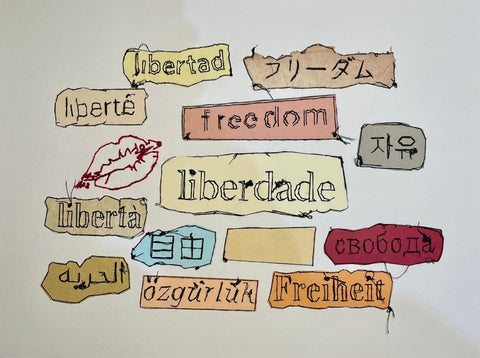 libertad
フリーダム
liberté
freedom
자유
liberdade
libertà
自由
свобода
الحرية
özgürlük
Freiheit